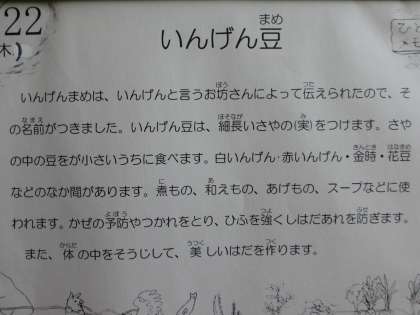 22
木)
いんげん豆
ひと
メモ
いんげんまめは、いんげんと言うお坊さんによって伝えられたので、そ
の名前がつきました。いんげん豆は、細長いさやの(実)をつけます。さや
の中の豆をが小さいうちに食べます。白いんげん・赤いんげん・金時・花豆
などのなか間があります。煮もの、和えもの、あげもの、スープなどに使
われます。かぜの予防やつかれをとり、ひふを強くしはだあれを防ぎます。
また、体の中をそうじして、美しいはだを作ります。